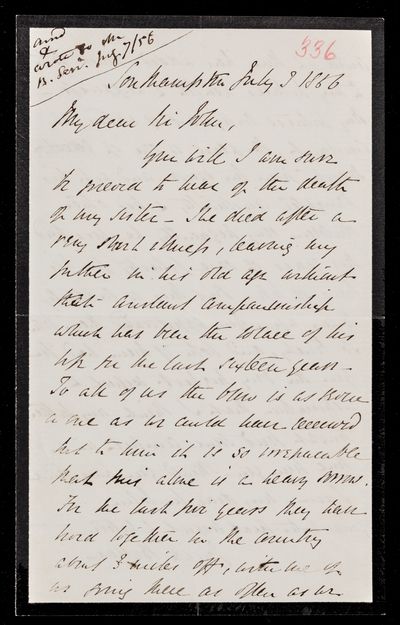 and
wrote to Mr
B. Senr. July 7/56
336
Southampton July 3 1856
My dear Sir John,
You will I am sure
be grieved to hear of the death
of my Sister - She died after a
very short illness, leaving my
father in his old age without
that constant companionship
which has been the solace of his
life for the last sixteen years -
To all of us the blow is as severe
a one as we could have received
but to him it is so irreparable
that this alone is a heavy sorrow.
For the last five years they have
lived together in the country
about 3 miles off, with one of
us going there as often as we